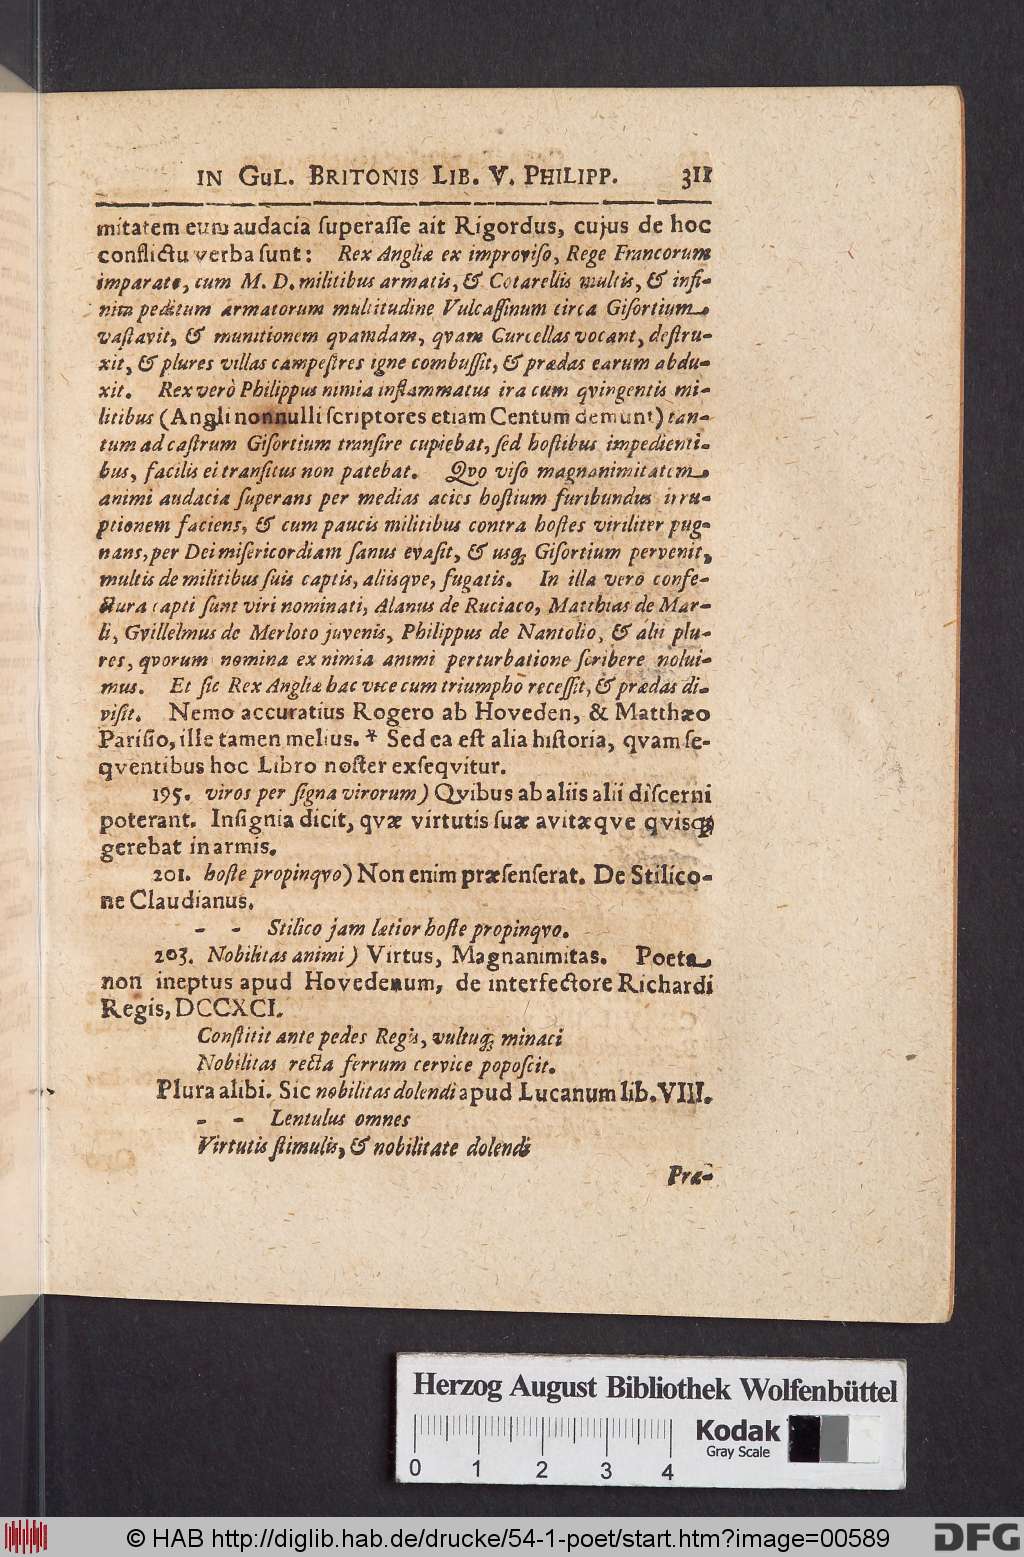 IN GUL. BRITONIS LIB. V. PHILIPP. 311
mitatem eum audacia superasse ait Rigordus, cujus de hoc
conflictu verba sunt: Rex Angliæ ex improviso, Rege Francorum
imparato, cum M. D. militibus armatis, & Cotarellis multis, & infi-
nita peditum armatorum multitudine Vulcassinum circa Gisortium
vastavit, & munitionem qvamdam, qvam Curcellas vocant, destru-
xit, & plures villas campestres igne combussit, & prædas earum abdu-
xit. Rex verò Philippus nimia inflammatus ira cum qvingentis mi-
litibus (Angli nonnulli scriptores etiam Centum demunt) tan-
tum ad castrum Gisortium transire cupiebat, sed hostibus impedienti-
bus, facilis ei transitus non patebat. Qvo viso magnanimitatem
animi audacia superans per medias acies hostium furibundus irru-
ptionem faciens, & cum paucis militibus contra hostes viriliter pug-
nans, per Dei misericordiam sanus evasit, & usq; Gisortium pervenit,
multis de militibus suis captis, aliisqve, fugatis. In illa vero confe-
ctura capti sunt viri nominati, Alanus de Ruciaco, Matthias de Mar-
li, Gvillelmus de Merloto juvenis, Philippus de Nantolio, & alii plu-
res, qvorum nomina ex nimia animi perturbatione scribere nolui-
mus. Et sic Rex Angliæ hac vice cum triumpho recessit, & prædas di-
visit. Nemo accuratius Rogero ab Hoveden, & Matthæo
Parisio, ille tamen melius. * Sed ea est alia historia, qvam se-
qventibus hoc Libro noster exseqvitur.
195. viros per signa virorum) Qvibus ab aliis alii discerni
poterant. Insignia dicit, qvæ virtutis suæ avitæqve qvisq;
gerebat in armis.
201. hoste propinqvo) Non enim præsenserat. De Stilico-
ne Claudianus.
- - Stilico jam lætior hoste propinqvo.
203. Nobilitas animi) Virtus, Magnanimitas. Poeta
non ineptus apud Hovedenum, de interfectore Richardi
Regis, DCCXCI.
Constitit ante pedes Regis, vultuq; minaci
Nobilitas recta ferrum cervice poposcit.
Plura alibi. Sic nobilitas dolendi apud Lucanum lib. VIII.
- - Lentulus omnes
Virtutis stimulis, & nobilitate dolendi
Præ-
Herzog August Bibliothek Wolfenbüttel
0 1 2 3 4
Kodak
Gray Scale
© HAB http://diglib.hab.de/drucke/54-1-poet/start.htm?image=00589
DFG